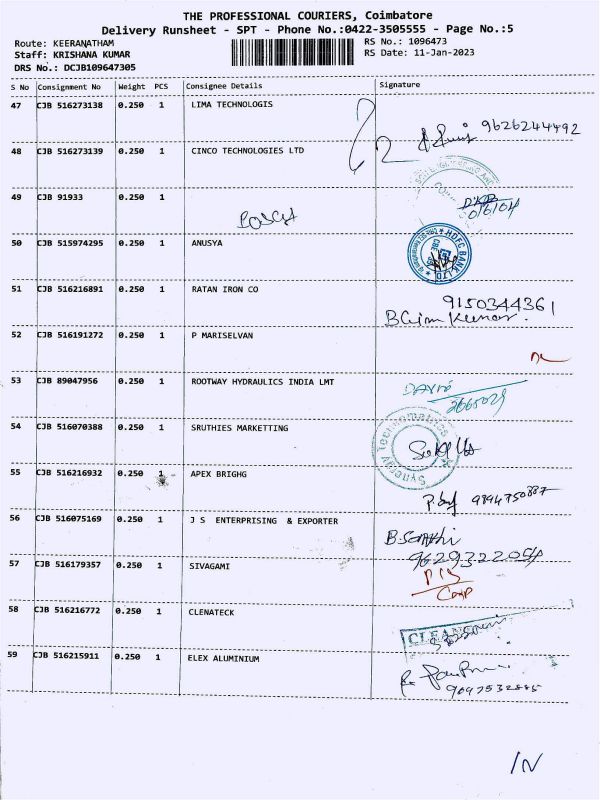 THE PROFESSIONAL COURIERS, Coimbatore
Delivery Runsheet - SPT - Phone No.:0422-3505555 - Page No.:5
Route: KEERANATHAM RS No.: 1096473
Staff: KRISHANA KUMAR RS Date: 11-Jan-2023
DRS No.: DCJB109647305
S No Consignment No Weight PCS Consignee Details Signature
47 CJB 516273138 0.250 1 LIMA TECHNOLOGIS
9626244492
48 CJB 516273139 0.250 1 CINCO TECHNOLOGIES LTD
49 CJB 91933 0.250 1
50 CJB 515974295 0.250 1 ANUSYA
HDFC BANK LTD
51 CJB 516216891 0.250 1 RATAN IRON CO
9150344361
52 CJB 516191272 0.250 1 P MARISELVAN
53 CJB 89047956 0.250 1 ROOTWAY HYDRAULICS INDIA LMT
54 CJB 516070388 0.250 1 SRUTHIES MARKETTING
55 CJB 516216932 0.250 1 APEX BRIGHG
9894750887
56 CJB 516075169 0.250 1 J S ENTERPRISING & EXPORTER
57 CJB 516179357 0.250 1 SIVAGAMI
58 CJB 516216772 0.250 1 CLENATECK
59 CJB 516215911 0.250 1 ELEX ALUMINIUM